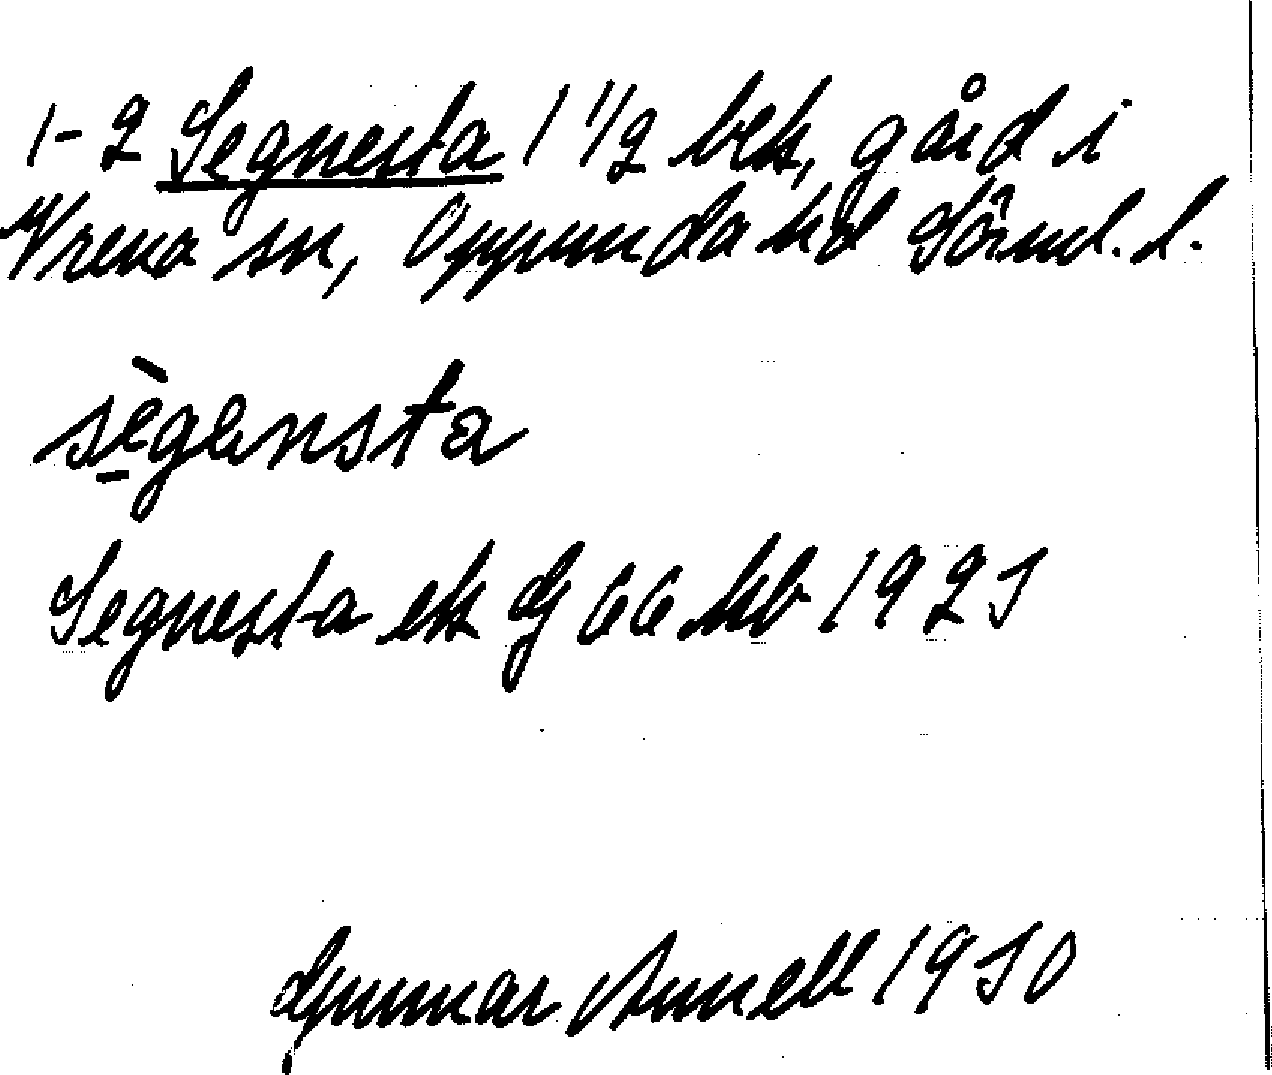 1-2 Segnesta 1 1/2 bek, gård i
Vrena sn, Oppunda hd Sörml. l.
sègensta
Segnesta ek bl 66 Kb 1925
Gunnar Annell 1950